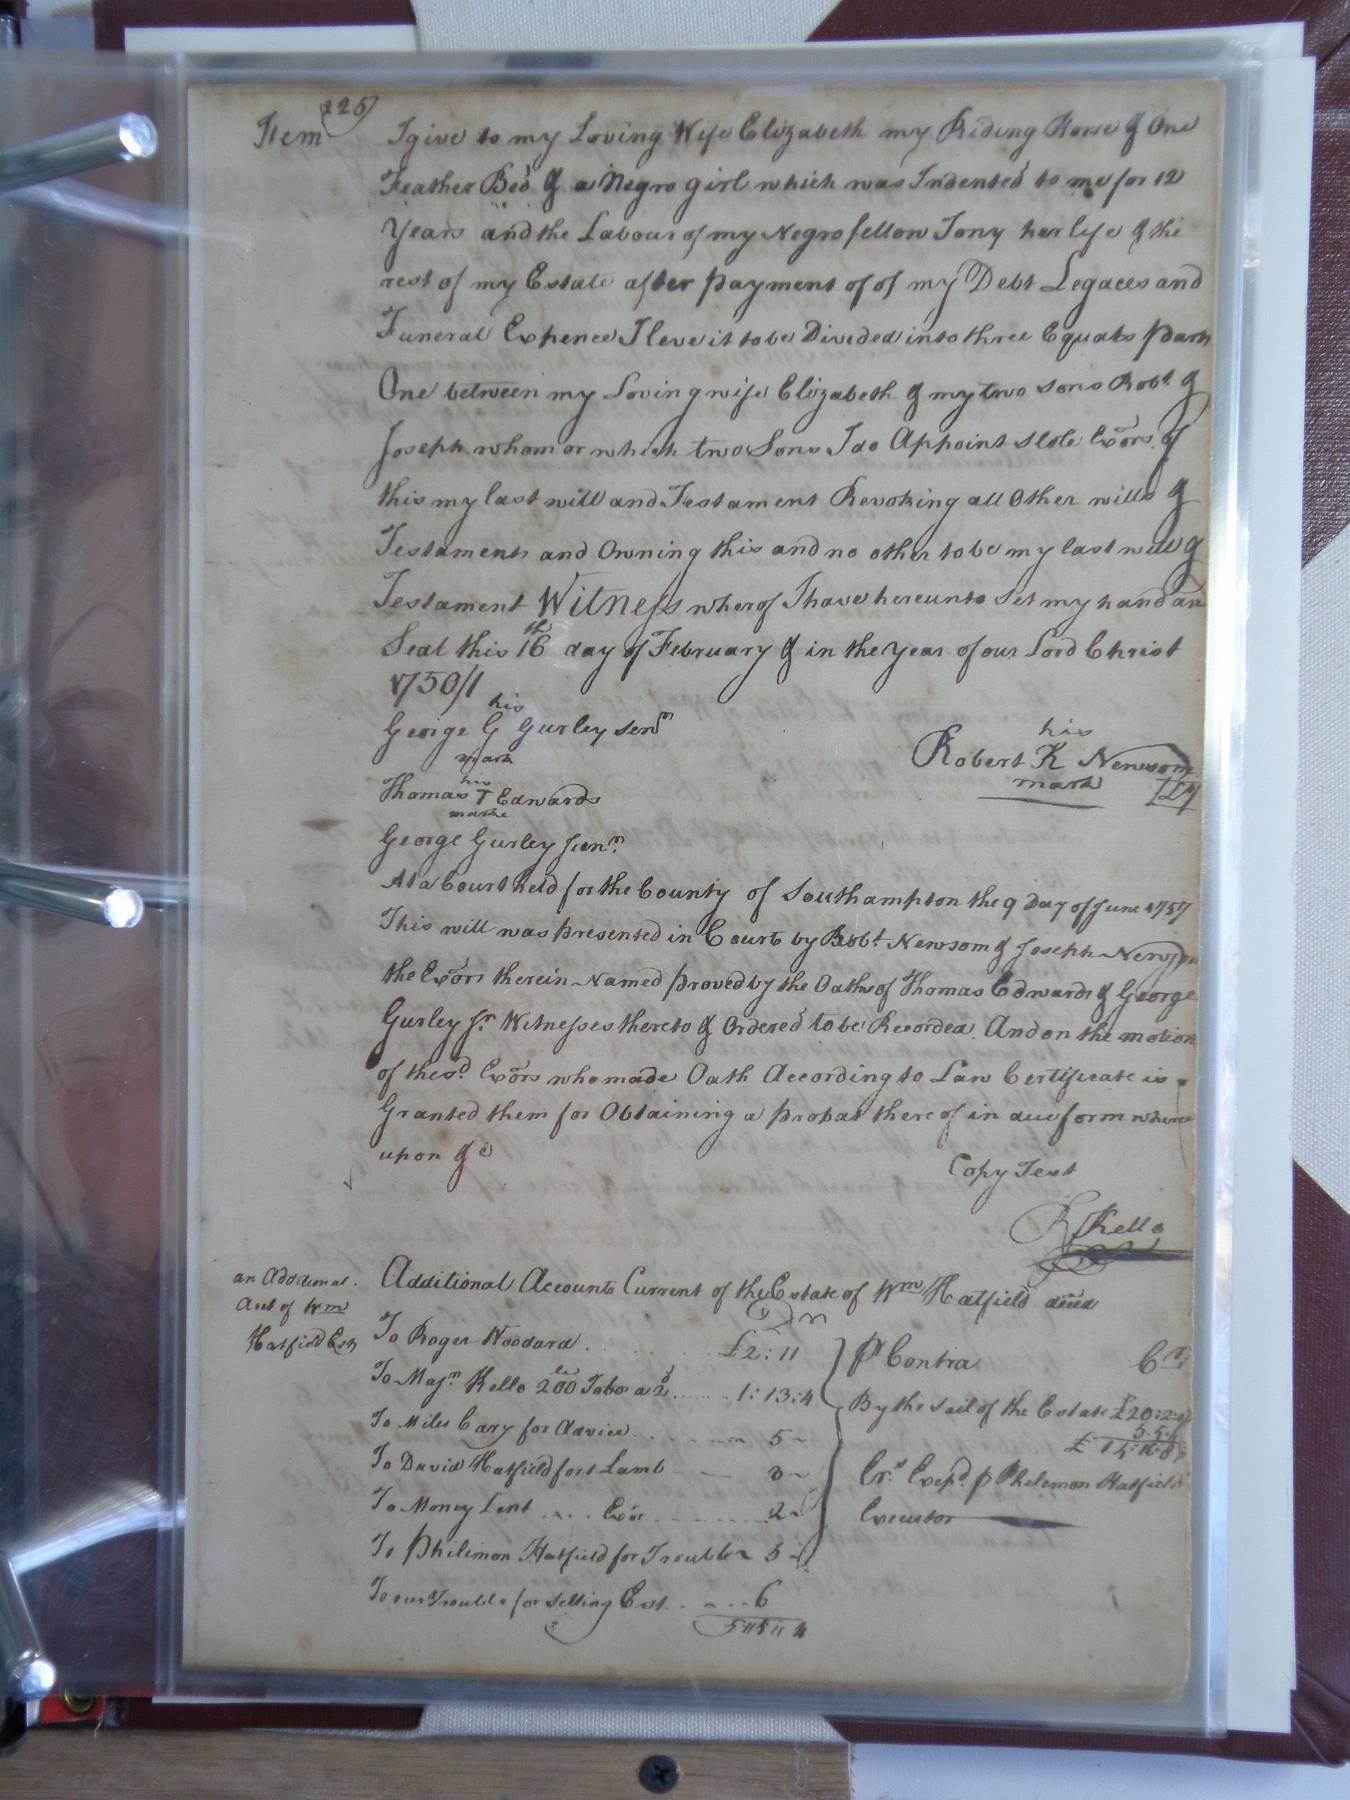 225
Item I give to my Loving Wife Elizabeth my Riding Horse & One
Feather Bed & a Negro girl which was Indented to me for 12
Years and the Labour of my Negro fellow Tony her life & the
rest of my Estate after payment of of my Debt Legacees and
Funeral Expence I leve it to be Divided into three Equals parts
One between my Loving wife Elizabeth & my two sons Robt. &
Joseph whom or which two Sons I do Appoint Sole Exors. of
this my last will and Testament Revoking all Other wills &
Testaments and Owning this and no other to be my last will &
Testament Witness wherof I have hereunto Set my hand an
Seal this 16th day of February & in the year of our Lord Christ
1750/1
his
George G Gurley Senr
mark
his
Robert K Newsom
mark
his
Thomas T Edwards
marke
George Gurley Junr.
At a Court held for the County of Southampton the 9 Day of June 1757
This will was presented in Court by Robt. Newsom & Joseph Newsom
the Exors therein Named proved by the Oaths of Thomas Edwards & George
Gurley Jr. Witnesses thereto & Ordered to be Recorded. And on the motion
of the sd. Exors who made Oath According to Law Certificate is
Granted them for Obtaining a probat there of in due form where
upon &c
Copy Test
R Kello
an Additional.
Act of Wm
Hatfield Est
Additional Accounts Current of the Estate of Wm Hatfield deced
Dr
To Roger Woodard . . . £2:11
To Majr. Kello 200 lb Tobo a 2d . . . 1:13:4
To Miles Cary for Advice . . . 5
To David Hatfield for 1 Lamb 3
To Money Lent . . . Exor . . . 2
To Philimon Hatfield for Trouble 5
To our Trouble for Selling Est. . . . 6
5"5"4
P Contra Cr.
By the Sail of the Estate £20:2:
5.5.4
£14:16:8
Crs. Excpd. p Philemon Hatfield
Executor